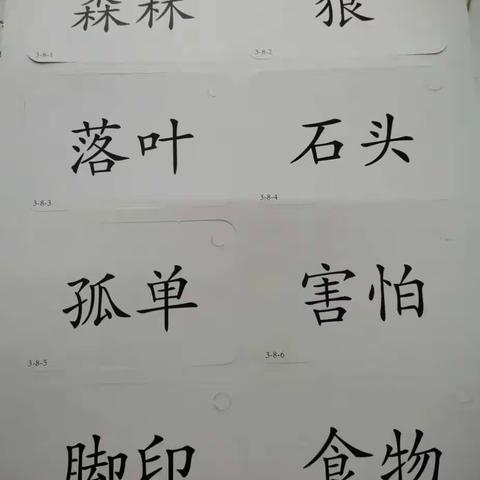 森林 狼
3-8-1 3-8-2
落叶 石头
3-8-3 3-8-4
孤单 害怕
3-8-5 3-8-6
脚印 食物